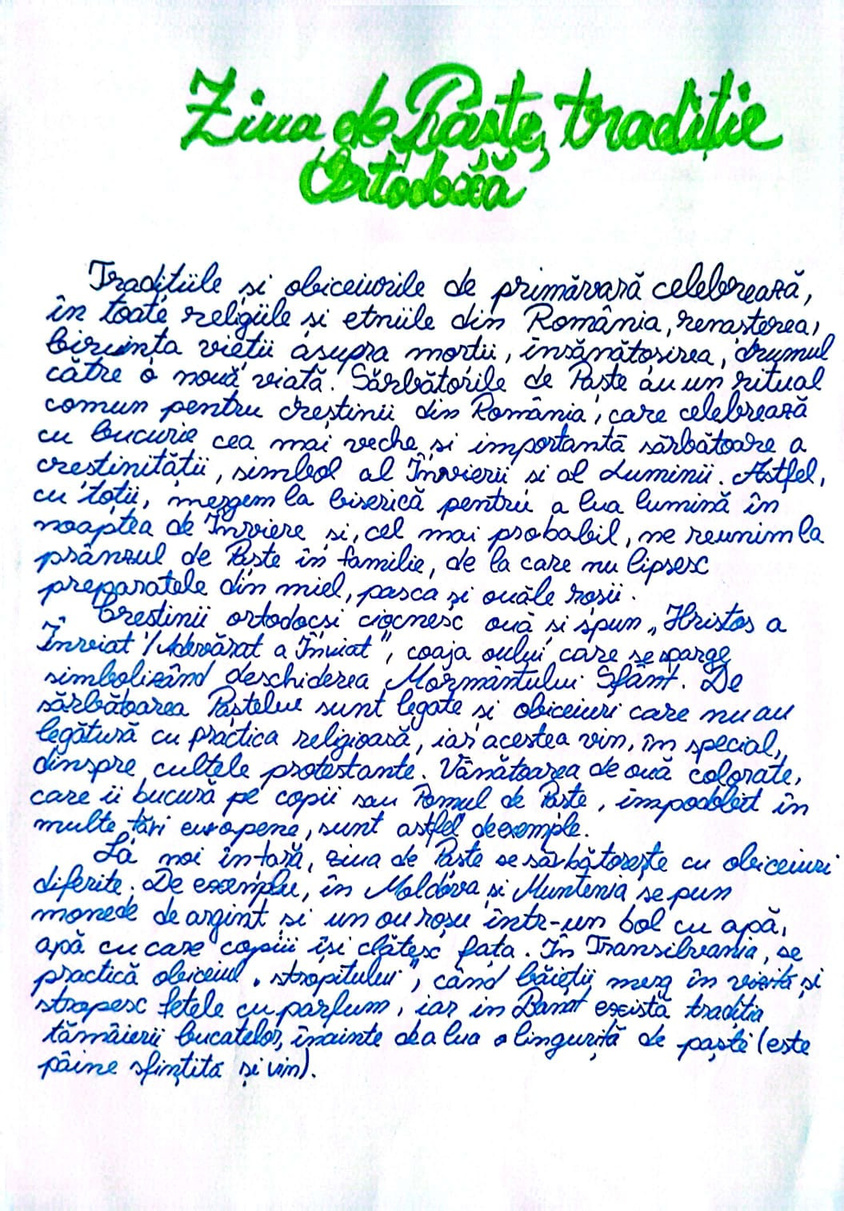 Ziua de Paște, tradiție
Ortodoxă
Tradițiile și obiceiurile de primăvară celebrează,
în toate religiile și etniile din România, renașterea,
biruința vieții asupra morții, însănătoșirea, drumul
către o nouă viață. Sărbătorile de Paște au un ritual
comun pentru creștinii din România, care celebrează
cu bucurie cea mai veche și importantă sărbătoare a
creștinității, simbol al Învierii și al Luminii. Astfel,
cu toții, mergem la biserică pentru a lua lumină în
noaptea de Înviere și, cel mai probabil, ne reunim la
prânzul de Paște în familie, de la care nu lipsesc
preparatele din miel, pasca și ouăle roșii.
Creștinii ortodocși ciocnesc ouă și spun „Hristos a
Înviat"/Adevărat a Înviat", coaja oului care se sparge
simbolizând deschiderea Mormântului Sfânt. De
sărbătoarea Paștelui sunt legate și obiceiuri care nu au
legătură cu practica religioasă, iar acestea vin, în special,
dinspre cultele protestante. Vânătoarea de ouă colorate,
care îi bucură pe copii sau Pomul de Paște, împodobit în
multe țări europene, sunt astfel de exemple.
La noi în țară, ziua de Paște se sărbătorește cu obiceiuri
diferite. De exemplu, în Moldova și Muntenia se pun
monede de argint și un ou roșu într-un bol cu apă,
apă cu care copiii își clătesc fața. În Transilvania, se
practică obiceiul „stropitului", când băieții merg în vizită și
stropesc fetele cu parfum, iar in Banat există tradiția
tămâierii bucatelor, înainte de a lua o linguriță de paști (este
pâine sfințită și vin).